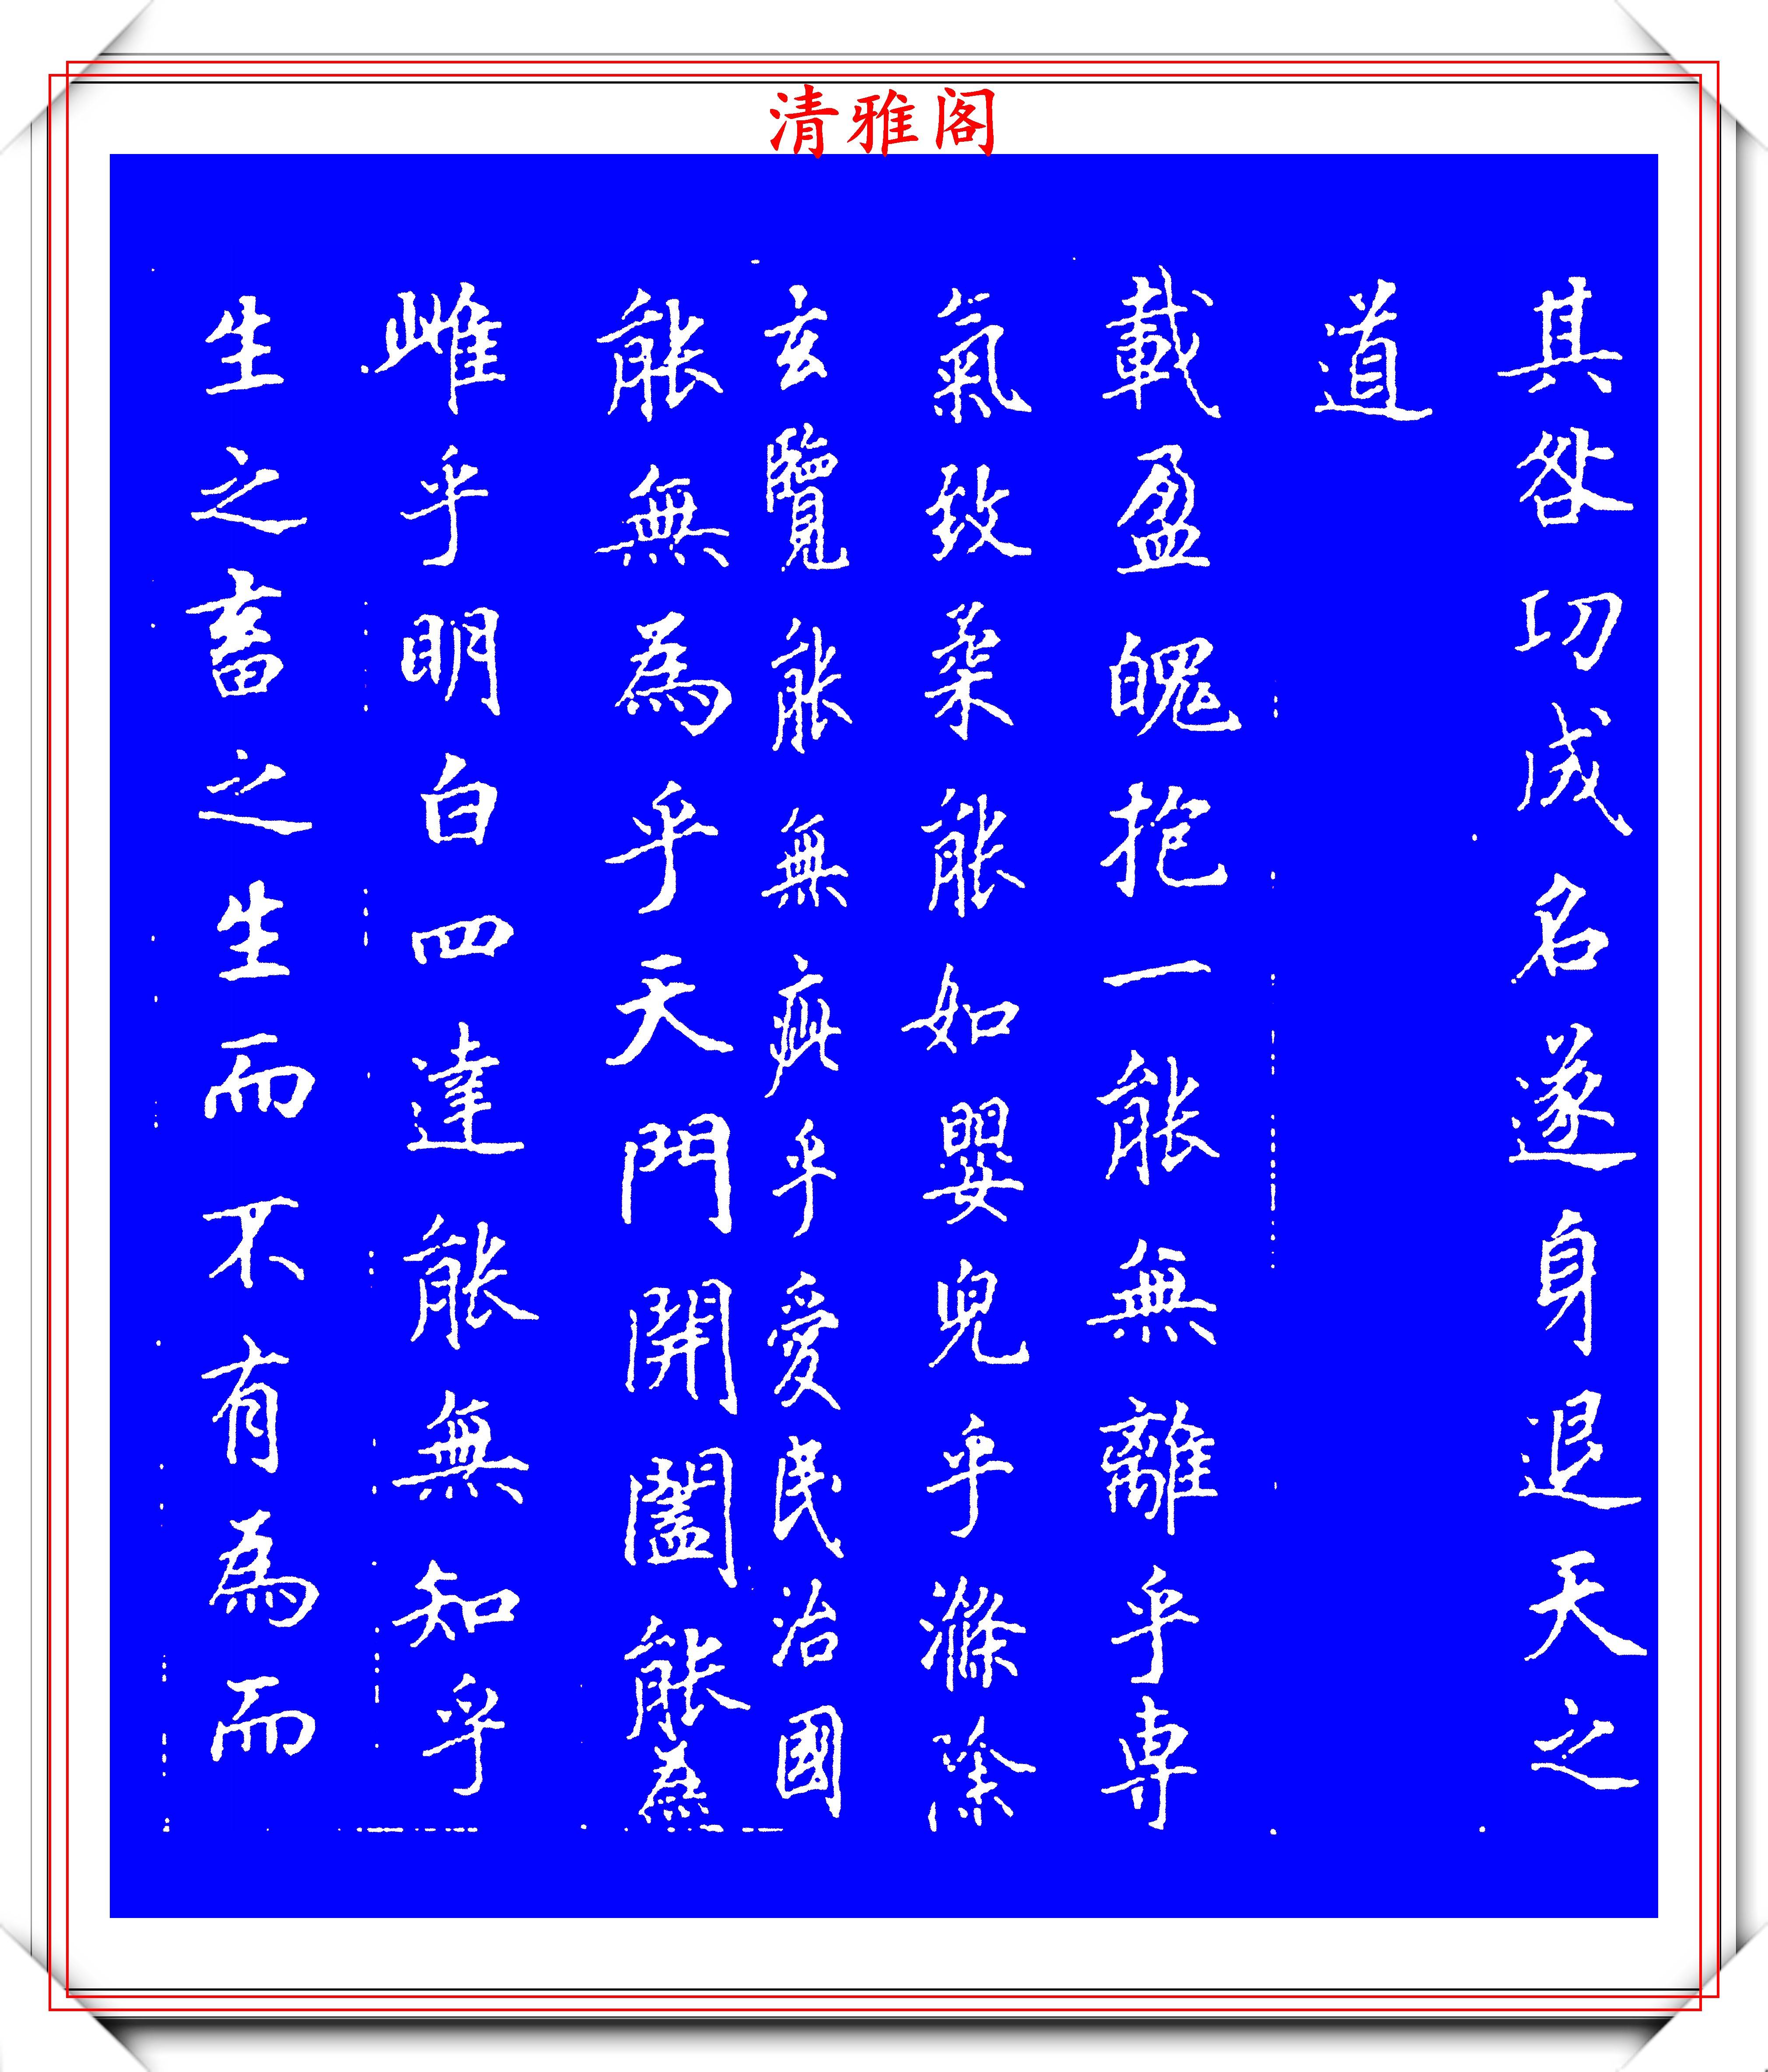 清雅阁
其咎功成名遂身退天之
道
載盈魄抱一能無離乎專
氣致柔能如嬰兒乎滌除
玄覽能無疵乎愛民治國
能無為乎天門開闔能為
雌乎明白四達能無知乎
生之畜之生而不有為而